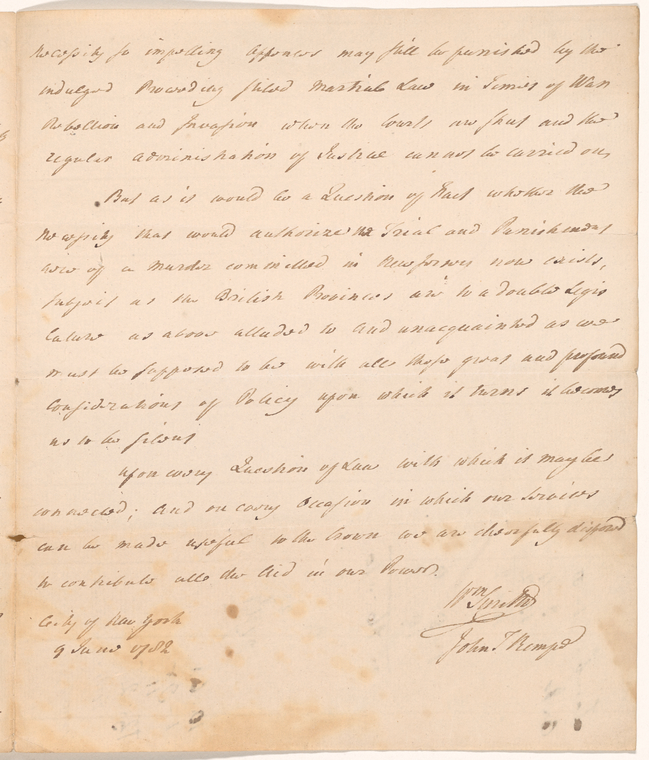 Necessity so impelling Offences may still be punished by the
indulged Proceeding stiled Martial Law in Times of War
Rebellion and Invasion when the Courts are shut and the
regular administration of Justice cannot be carried on,
But as it would be a Question of Fact whether the
Necessity that would authorize the Trial and Punishment
of a Murder committed in New Jersey now exists,
subject as the British Provinces are to a double Legis
lature as above alluded to and unacquainted as we
must be supposed to be with all those great and profound
Considerations of Policy upon which it turns it becomes
us to be silent
upon every Question of Law with which it may be
connected; and on every Occasion in which our Services
can be made useful to the Crown we are chearfully disposed
to contribute all the Aid in our Power.
Wm Smith
City of New York
9 June 1782
John T Kempe